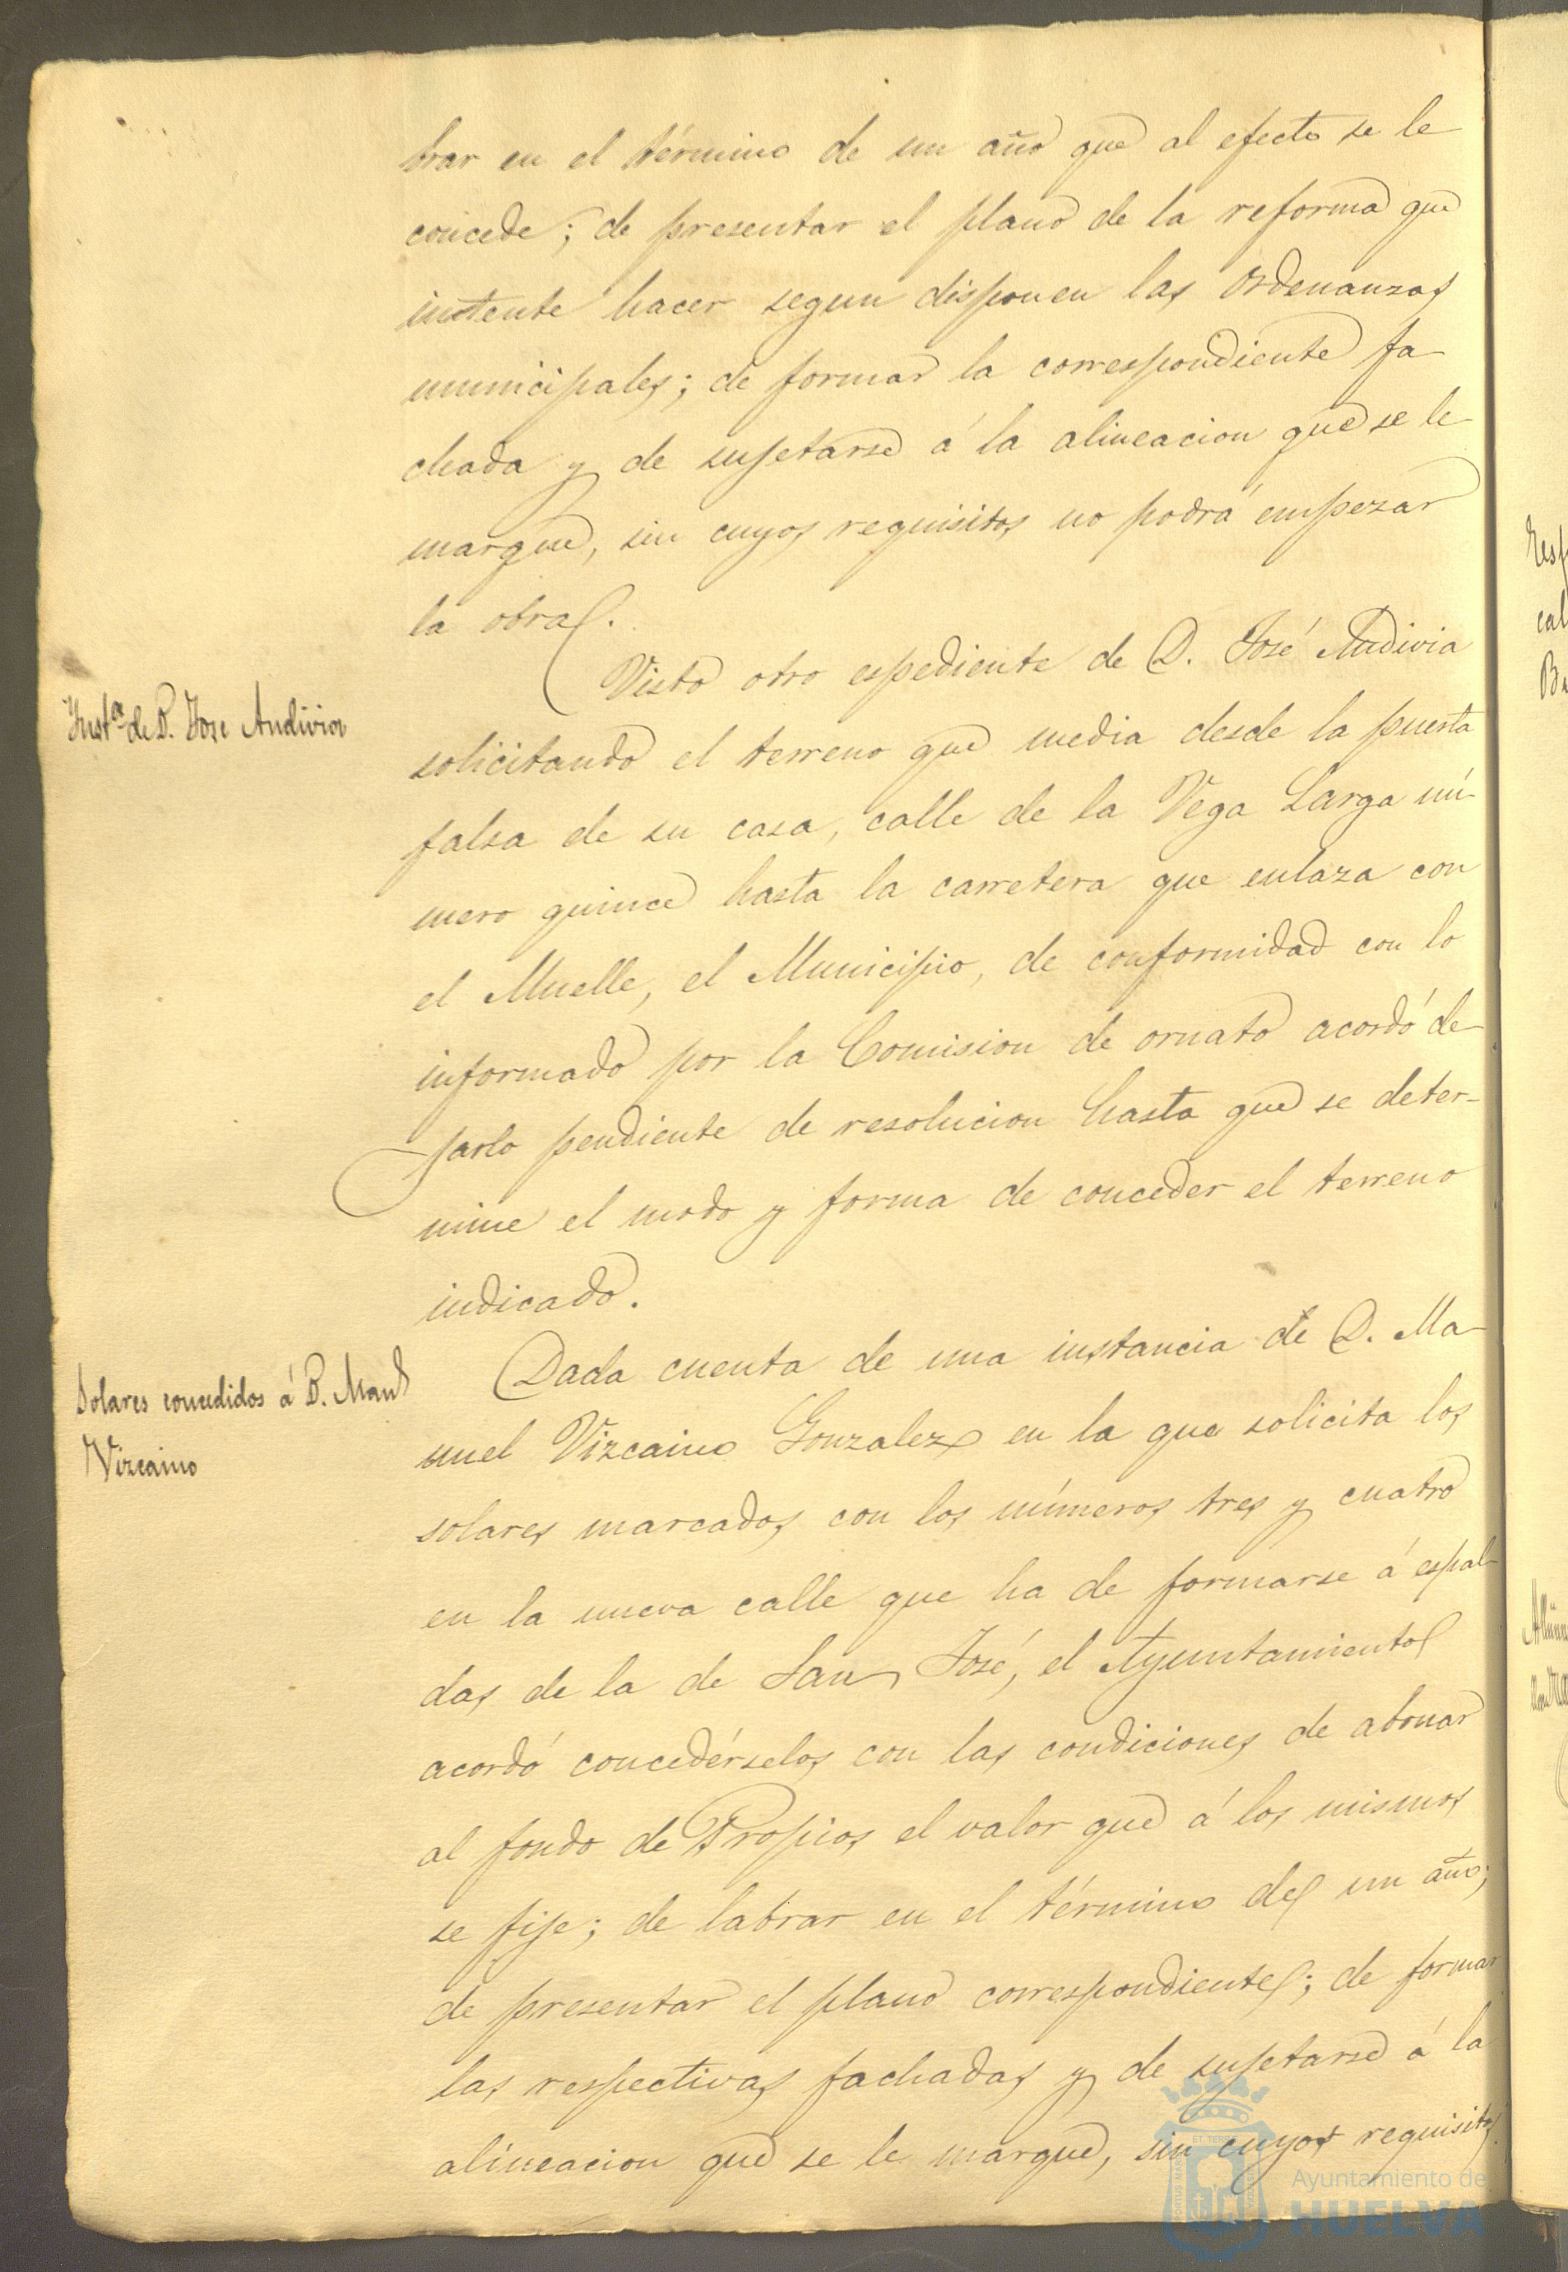 brar en el término de un año que al efecto se le
concede; de presentar el plano de la reforma que
intente hacer segun disponen las Ordenanzas
municipales; de formar la correspondiente fa-
chada y de sujetarse á la alineacion que se le
marque, sin cuyos requisitos no podrá empezar
la obra.
Inst.ª de D. Jose Andivia
Visto otro espediente de D. José Andivia
solicitando el terreno que media desde la puerta
falsa de su casa, calle de la Vega Larga nú-
mero quince hasta la carretera que enlaza con
el Muelle, el Municipio, de conformidad con lo
informado por la Comision de ornato acordó de-
jarlo pendiente de resolucion hasta que se deter-
mine el modo y forma de conceder el terreno
indicado.
Solares concedidos á D. Manl
Vizcaino
Dada cuenta de una instancia de D. Ma-
nuel Vizcaino Gonzalez en la que solicita los
solares marcados con los números tres y cuatro
en la nueva calle que ha de formarse á espal-
das de la de San José, el Ayuntamiento
acordó concedérselos con las condiciones de abonar
al fondo de Propios el valor que á los mismos
se fije; de labrar en el término de un año;
de presentar el plano correspondiente; de formar
las respectivas fachadas y de sujetarse á la
alineacion que se le marque, sin cuyos requisitos
Ayuntamiento de
HUELVA